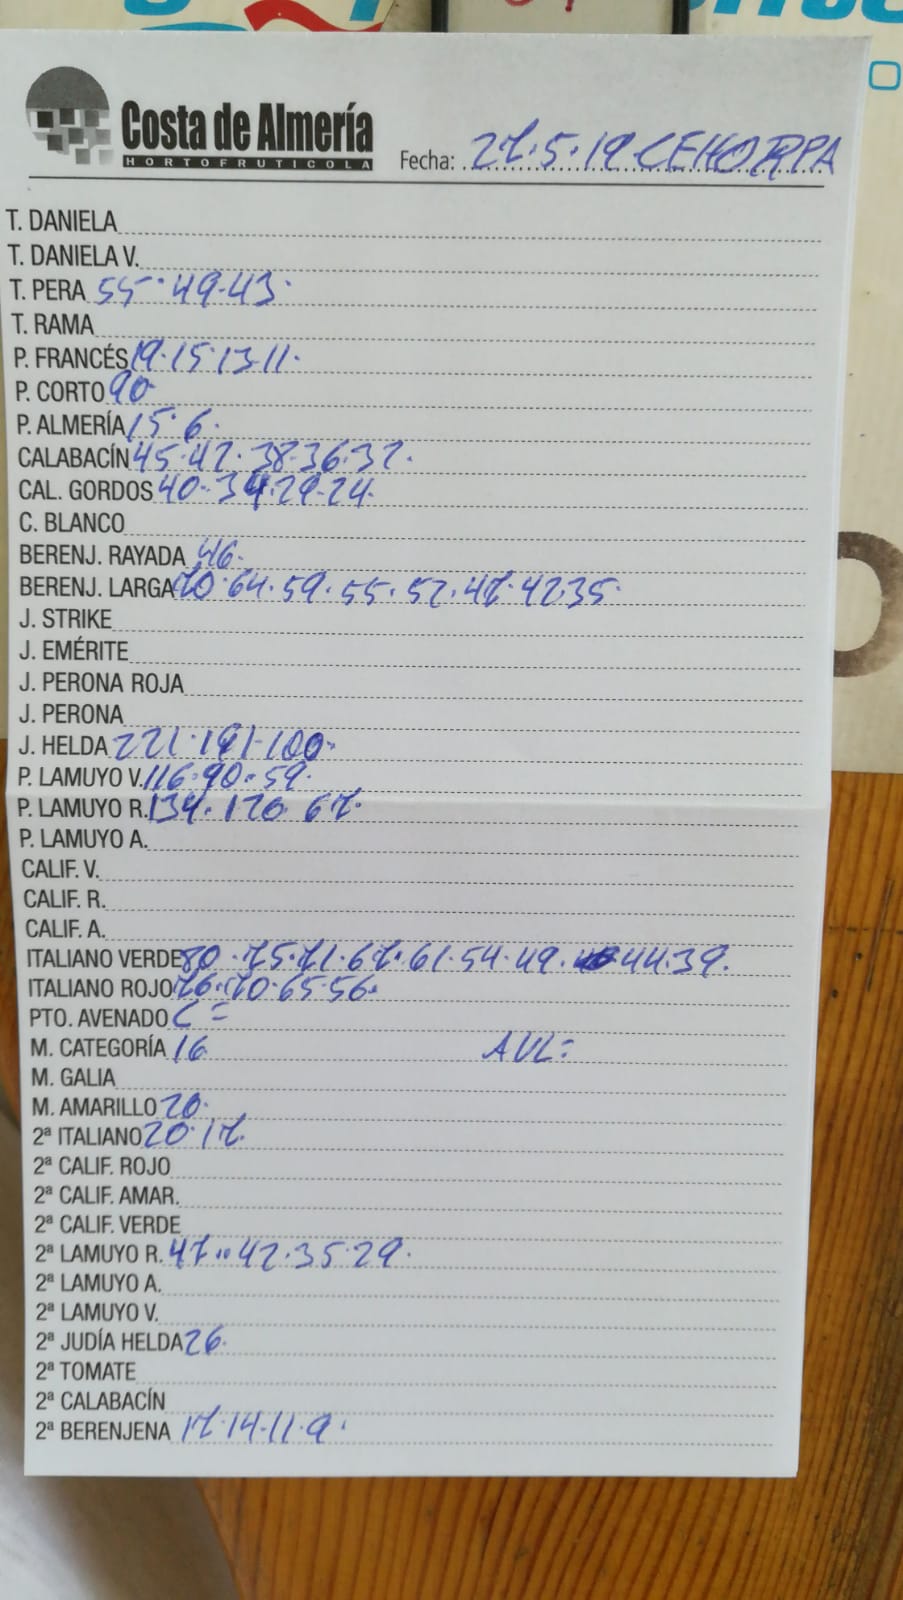 Costa de Almería
HORTOFRUTICOLA
Fecha: 27.5.19 CEHORPA
T. DANIELA
T. DANIELA V.
T. PERA 55.49.43.
T. RAMA
P. FRANCÉS 19.15.13.11.
P. CORTO 90
P. ALMERÍA 15.6.
CALABACÍN 45.42.38.36.32.
CAL. GORDOS 40.34.29.24.
C. BLANCO
BERENJ. RAYADA 46.
BERENJ. LARGA 70.64.59.55.52.47.42.35.
J. STRIKE
J. EMÉRITE
J. PERONA ROJA
J. PERONA
J. HELDA 221.191.100.
P. LAMUYO V. 116.90.59.
P. LAMUYO R. 134.120 67.
P. LAMUYO A.
CALIF. V.
CALIF. R.
CALIF. A.
ITALIANO VERDE 80.75.71.67.61.54.49. 44.39.
ITALIANO ROJO 76.70.65.56.
PTO. AVENADO C =
M. CATEGORÍA 16 AVL=
M. GALIA
M. AMARILLO 20.
2ª ITALIANO 20.17.
2ª CALIF. ROJO
2ª CALIF. AMAR.
2ª CALIF. VERDE
2ª LAMUYO R. 47..42.35.29.
2ª LAMUYO A.
2ª LAMUYO V.
2ª JUDÍA HELDA 26.
2ª TOMATE
2ª CALABACÍN
2ª BERENJENA 17.14.11.9.